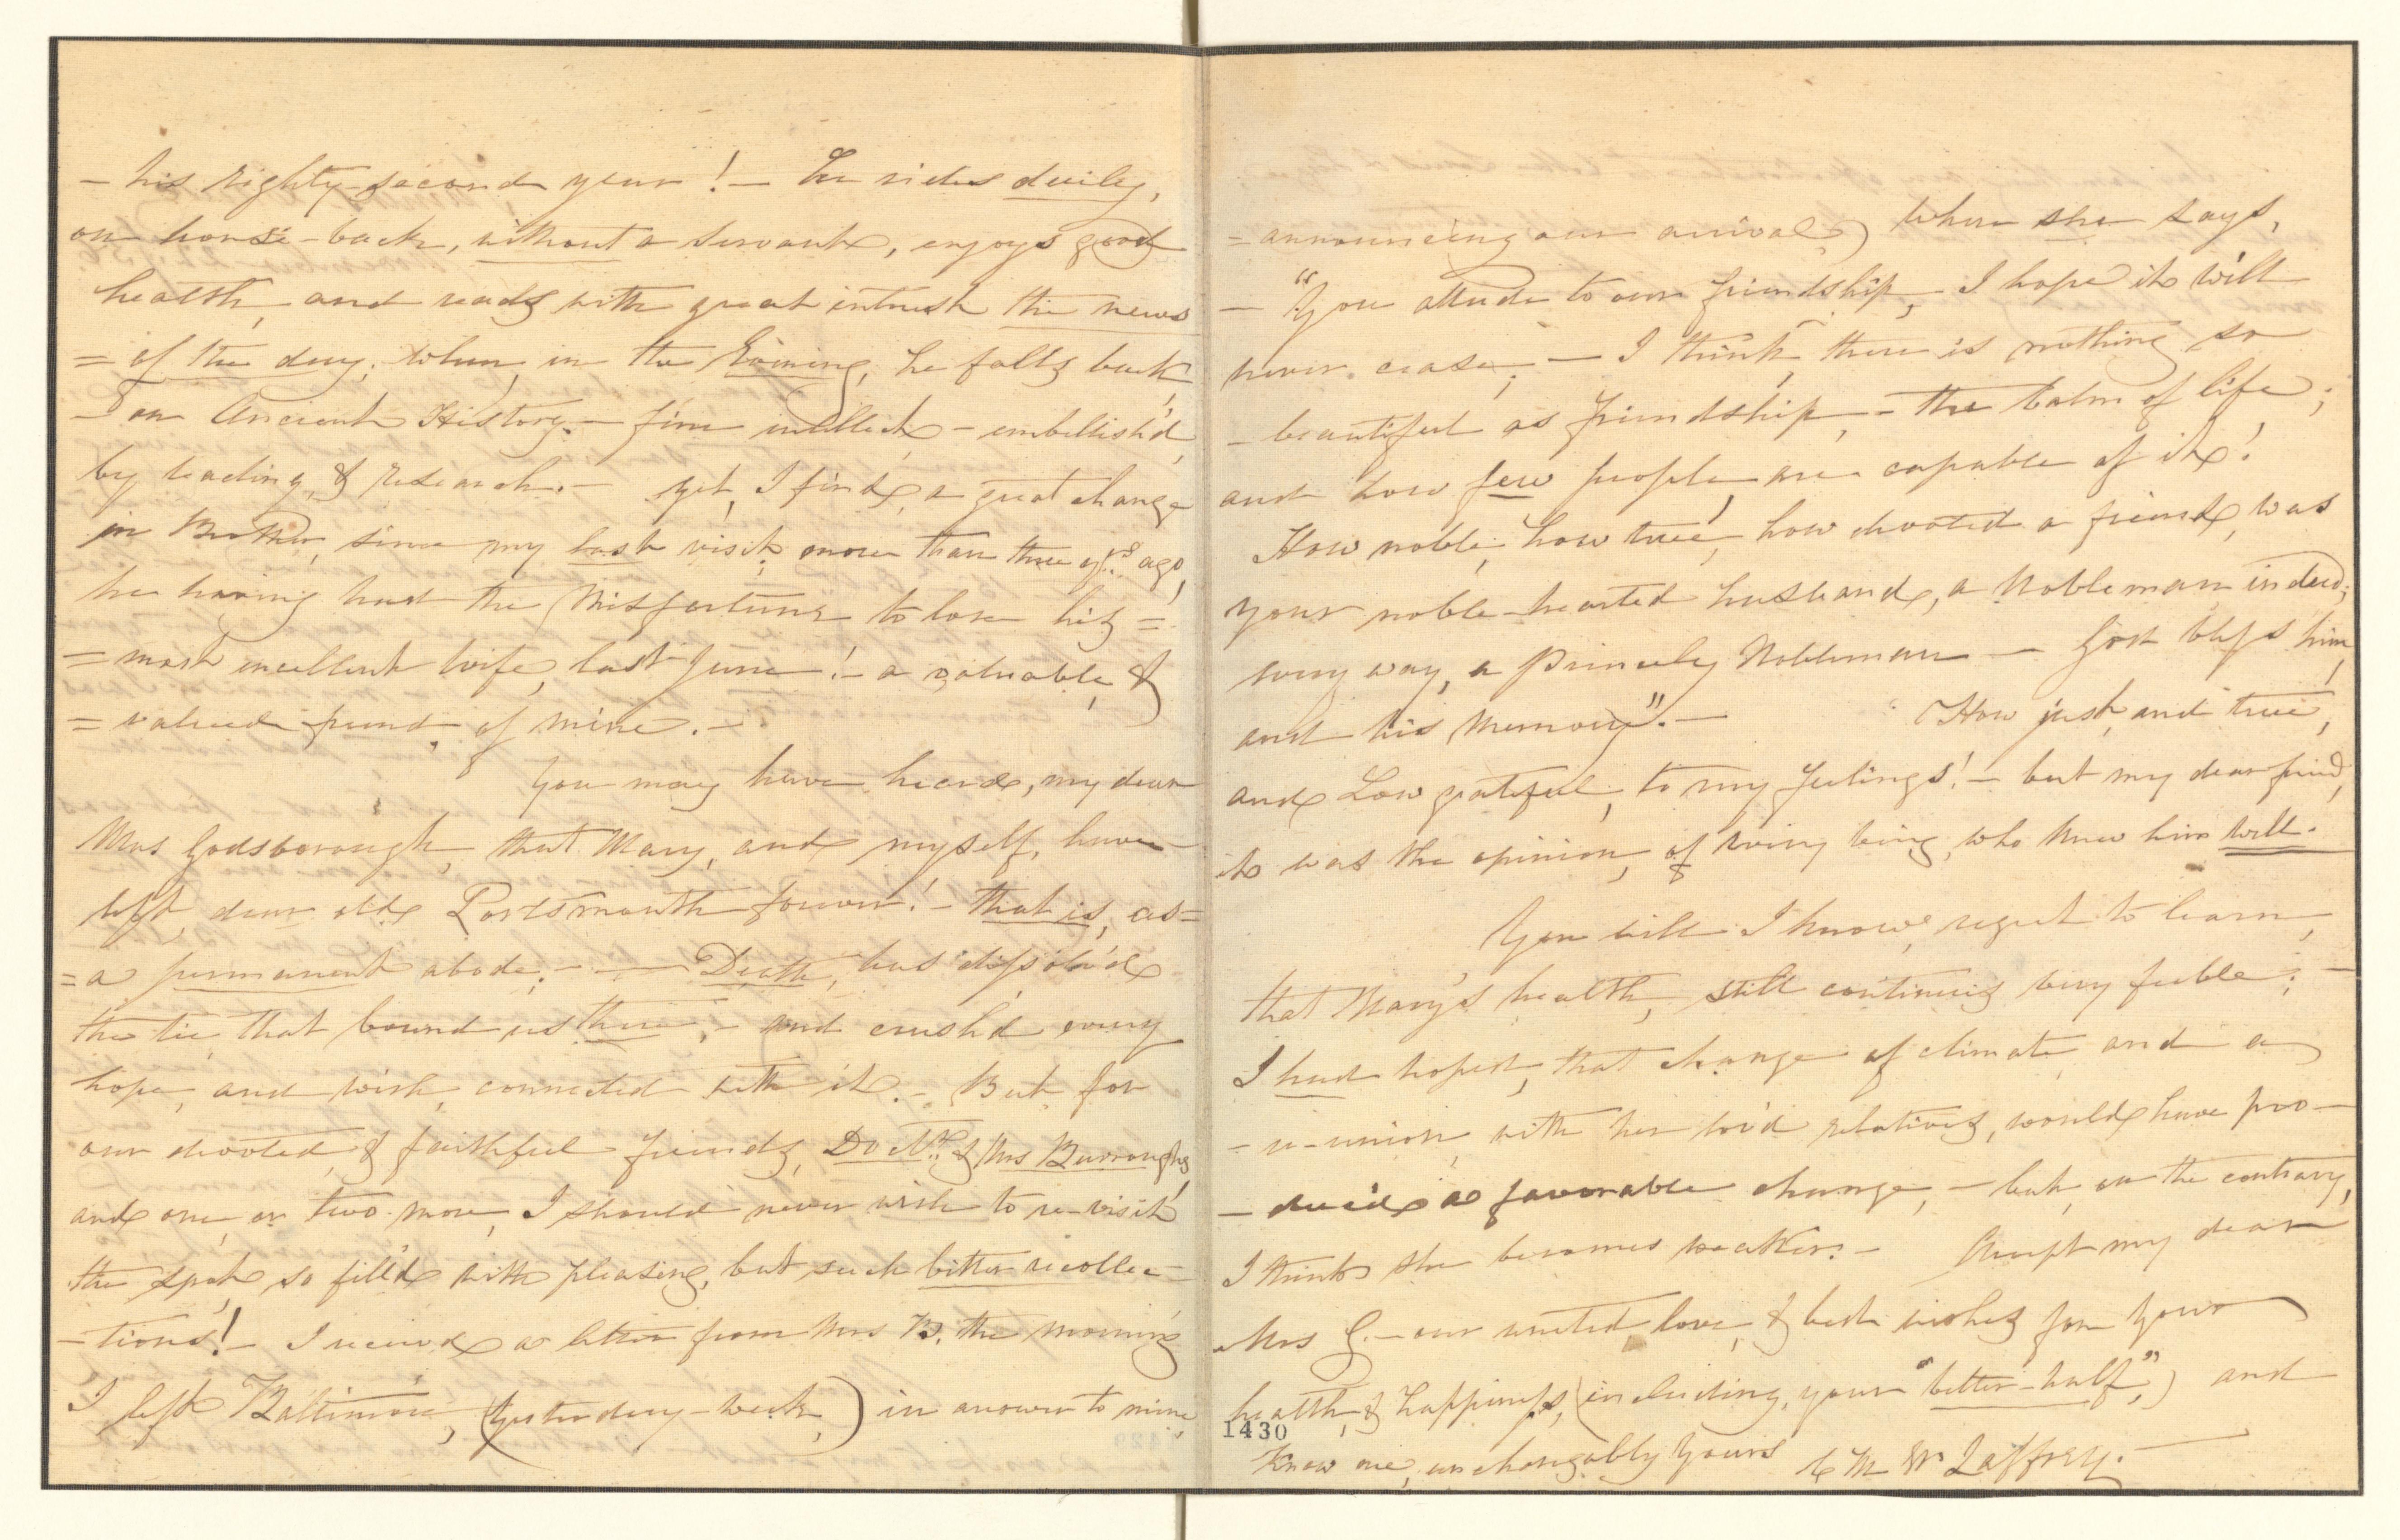 - his eighty-second year! - He rides daily,
on horse-back, without a servant, enjoys good
health, and reads with great interest the news
= of the day; when, in the Evening, he falls back,
- on Ancient History. - fine intellect, - embellish'd,
by reading, & research. - yet, I find, a great change
in Brother, since my last visit, more than three yrs. ago,
he having had the Misfortune to lose his =
= most excellent wife, last June! - a valuable, &
= valued friend, of mine. -
You may have heard, my dear
Mrs Godsborough, that Mary, and myself, have
left, dear old Portsmouth forever! - that is, as =
= a permanent abode; - — Death, has dissolv'd
the tie, that bound us there; - and crush'd every
hope, and wish, connected with it. - But for
our devoted, & faithful friends, Doctr. & Mrs Burroughs,
and one, or two more, I should never wish to re-visit
the spot, so fill'd with pleasing, but such bitter recollec-
- tions! - I receiv'd a letter from Mrs B. the morning
I left Baltimore, (yesterday-week,) in answer to mine,
= announcing our arrival,) when she says,
- "You allude to our friendship, I hope it will
never cease; - I think, there is nothing so
- beautiful as friendship, - the balm of life;
and how few people, are capable of it!
How noble, how true, how devoted a friend, was
your noble-hearted husband, a Nobleman indeed;
every way, a Princely Nobleman - God bless him,
and his Memory". - How just, and true,
and how grateful, to my feelings! - but my dear friend,
it was the opinion, of every being, who knew him well.
You will I know, regret to learn,
that Mary's health, still continues very feeble; -
I had hoped, that change of climate, and a
- re-union, with her lov'd relatives, would have pro-
- duc'd a favorable change, - but, on the contrary,
I think she becomes weaker. - Accept my dear
Mrs G. - our united love, & best wishes for your
health, & happiness, (including, your "better-half",) and
Know me, unchangably yours C M W Jaffrey. -
1430